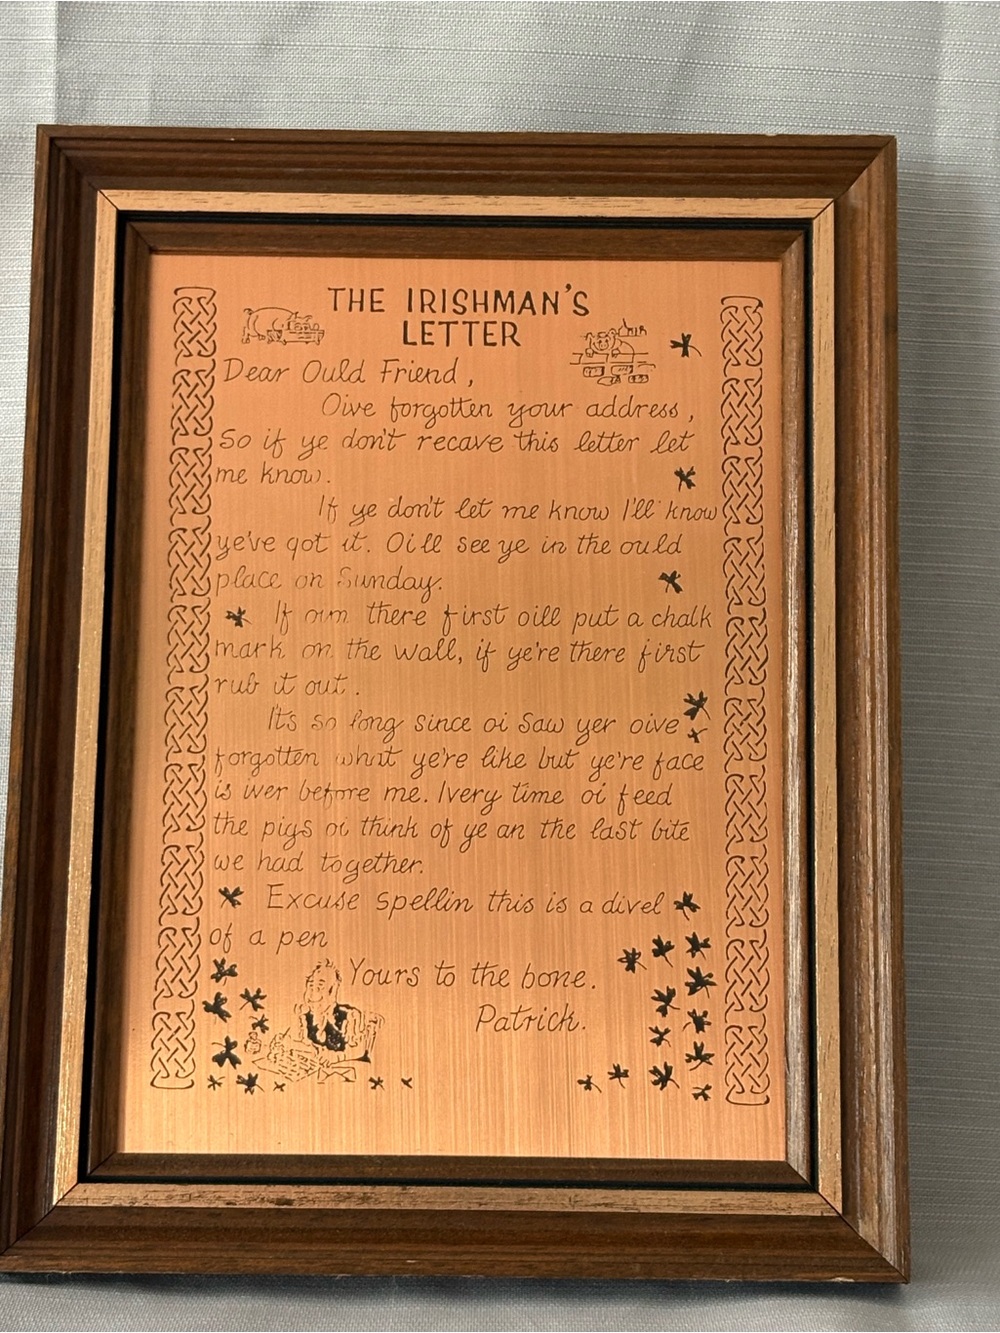 THE IRISHMAN'S
LETTER
Dear Ould Friend,
Oive forgotten your address,
So if ye don't recave this letter let
me know.
If ye don't let me know I'll know
ye've got it. Oill see ye in the ould
place on Sunday.
If oim there first oill put a chalk
mark on the wall, if ye're there first
rub it out.
It's so long since oi saw yer oive
forgotten what ye're like but ye're face
is iver before me. Ivery time oi feed
the pigs oi think of ye an the last bite
we had together.
Excuse Spellin this is a divel
of a pen
Yours to the bone.
Patrick.